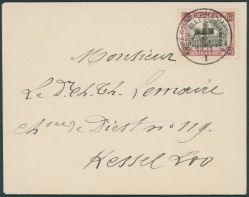 Monsieur
Le Dr. Ch. Th. Lemaire
chsée de Diest no 119.
Kessel Loo